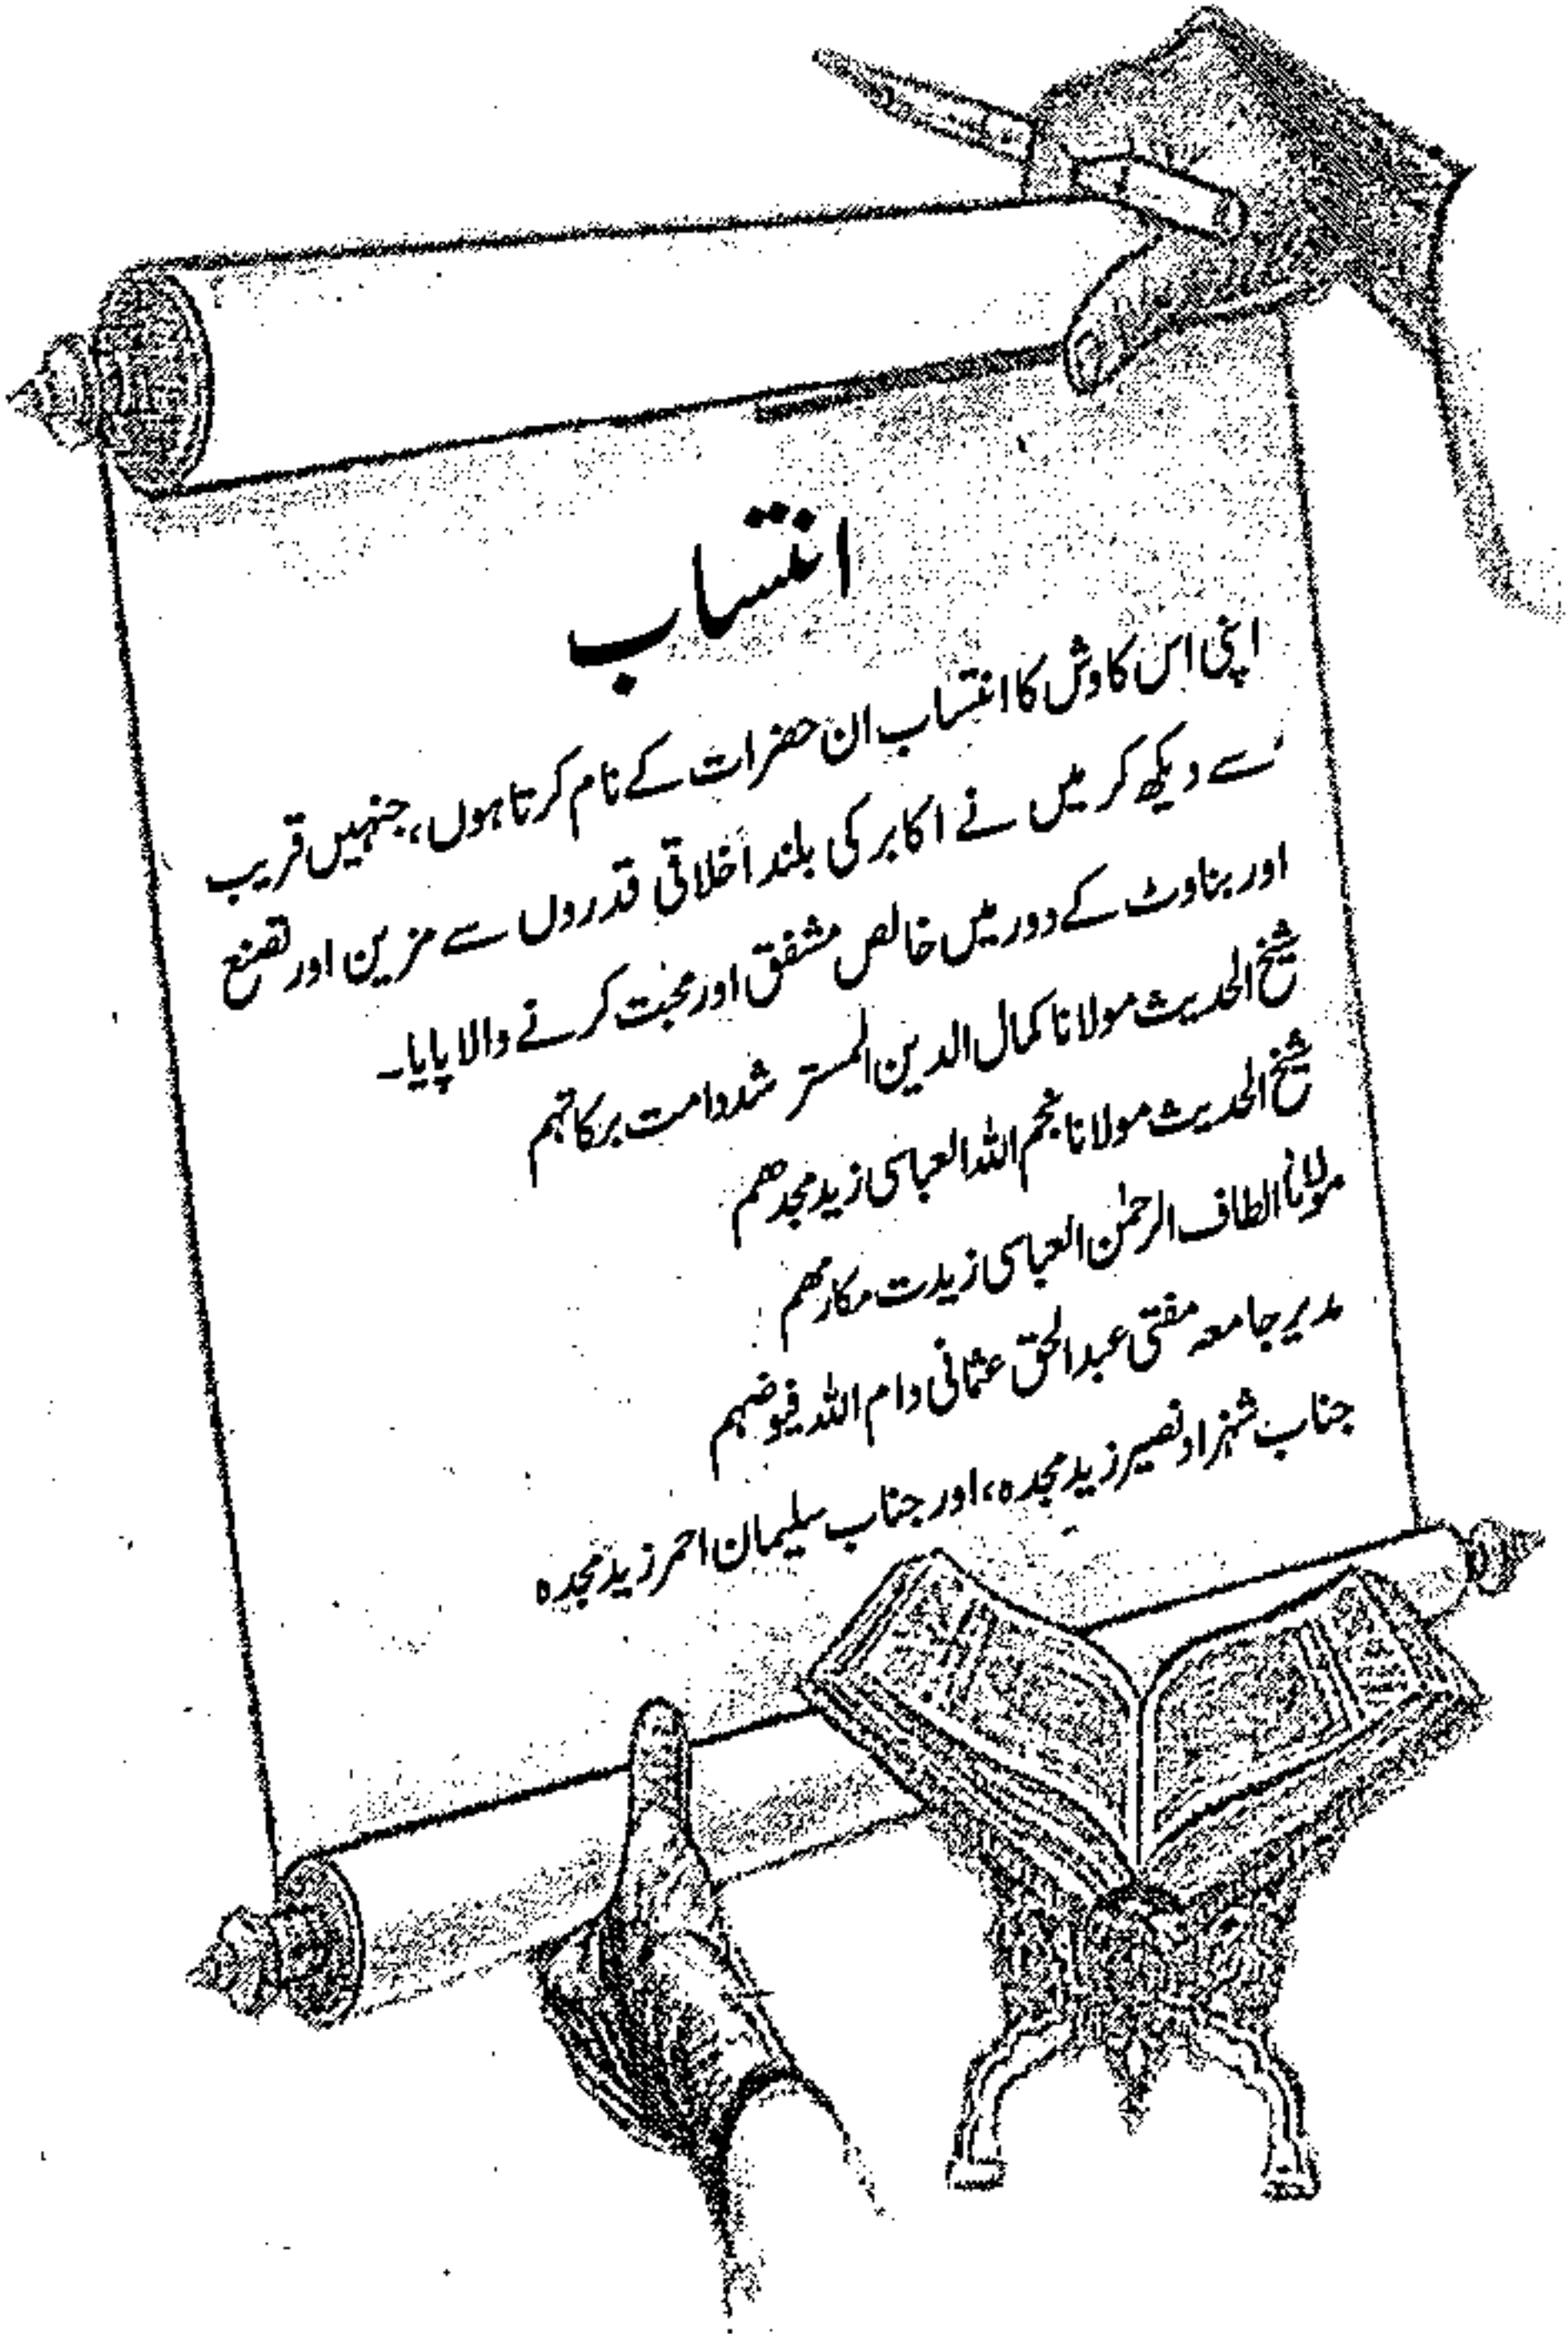 انتساب
اپنی اس کاوش کا انتساب ان حضرات کے نام کرتا ہوں، جنہیں قریب
سے دیکھ کر میں نے اکابر کی بلند اخلاقی قدروں سے مزین اور تصنع
اور بناوٹ کے دور میں خالص مشفق اور محبت کرنے والا پایا۔
شیخ الحدیث مولانا کمال الدین المستر شد دامت برکاتہم
شیخ الحدیث مولانا نجم اللہ العباسی زید مجدھم
مولانا الطاف الرحمٰن العباسی زیدت مکارمھم
مدیر جامعہ مفتی عبدالحق عثمانی دام اللہ فیوضہم
جناب شہزاد نصیر زید مجدہ، اور جناب سلیمان احمر زید مجدہ